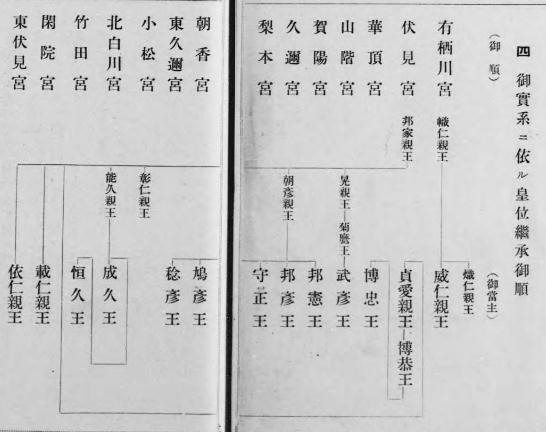 四 御實系ニ依ル皇位繼承御順
（御順）
（御當主）
有栖川宮
幟仁親王
熾仁親王
威仁親王
伏見宮
邦家親王
貞愛親王―博恭王
華頂宮
博忠王
山階宮
晃親王―菊麿王
武彥王
賀陽宮
邦憲王
久邇宮
朝彥親王
邦彥王
梨本宮
守正王
朝香宮
鳩彥王
東久邇宮
稔彥王
小松宮
彰仁親王
北白川宮
能久親王
成久王
竹田宮
恒久王
閑院宮
載仁親王
東伏見宮
依仁親王